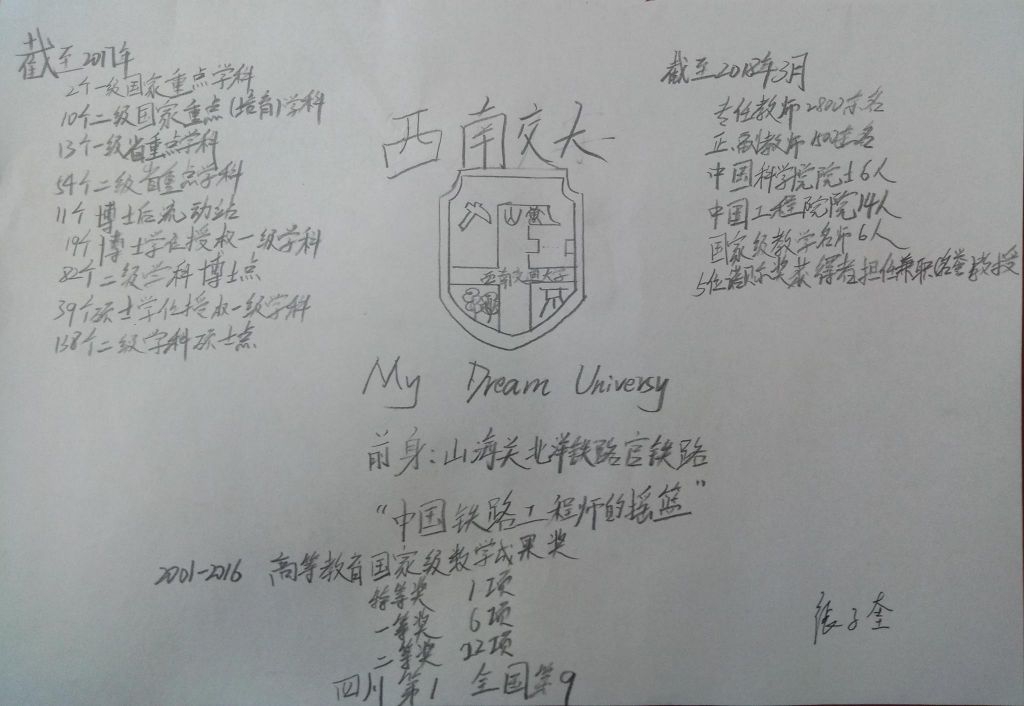 截至2017年
2个一级国家重点学科
10个二级国家重点(培育)学科
13个一级省重点学科
54个二级省重点学科
11个博士后流动站
19个博士学位授权一级学科
82个二级学科博士点
39个硕士学位授权一级学科
138个二级学科硕士点
西南交大
西南交通大学
截至2018年3月
专任教师2800余名
正、副教师1500余名
中国科学院院士6人
中国工程院院14人
国家级教学名师6人
5位诺贝尔奖获得者担任兼职(名誉)教授
My Dream Universy
前身:山海关北洋铁路官铁路
“中国铁路工程师的摇篮”
2001-2016 高等教育国家级教学成果奖
特等奖 1项
一等奖 6项
二等奖 22项
四川第1 全国第9
张子奎